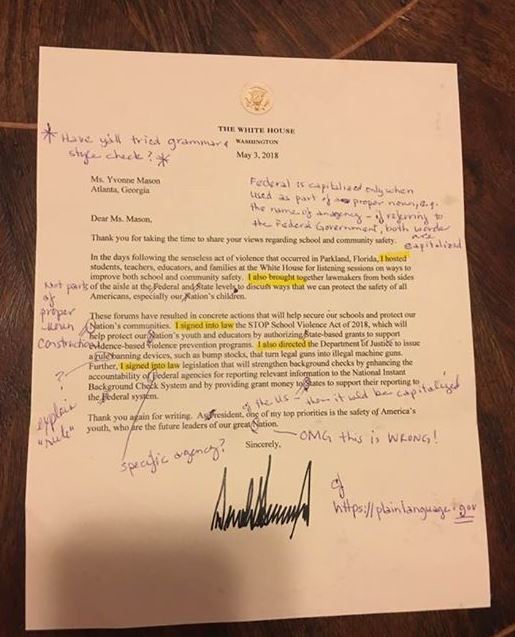 THE WHITE HOUSE
WASHINGTON
May 3, 2018
* Have y'all tried grammar &
style check? *
Ms. Yvonne Mason
Atlanta, Georgia
Federal is capitalized only when
used as part of a proper noun, e.g.
the name of an agency - if referring to
the Federal Government, both words
are
capitalized
Dear Ms. Mason,
Thank you for taking the time to share your views regarding school and community safety.
In the days following the senseless act of violence that occurred in Parkland, Florida, I hosted
students, teachers, educators, and families at the White House for listening sessions on ways to
improve both school and community safety. I also brought together lawmakers from both sides
of the aisle at the Federal and State levels to discuss ways that we can protect the safety of all
Americans, especially our Nation's children.
Not parts
of
proper
noun
construction
These forums have resulted in concrete actions that will help secure our schools and protect our
Nation's communities. I signed into law the STOP School Violence Act of 2018, which will
help protect our Nation's youth and educators by authorizing State-based grants to support
evidence-based violence prevention programs. I also directed the Department of Justice to issue
a rule banning devices, such as bump stocks, that turn legal guns into illegal machine guns.
Further, I signed into law legislation that will strengthen background checks by enhancing the
accountability of Federal agencies for reporting relevant information to the National Instant
Background Check System and by providing grant money to States to support their reporting to
the Federal system.
?
explain
"rule"
of the US - then it would be capitalized
Thank you again for writing. As President, one of my top priorities is the safety of America's
youth, who are the future leaders of our great Nation.
OMG this is WRONG!
Sincerely,
specific agency?
cf
https://plainlanguage.gov